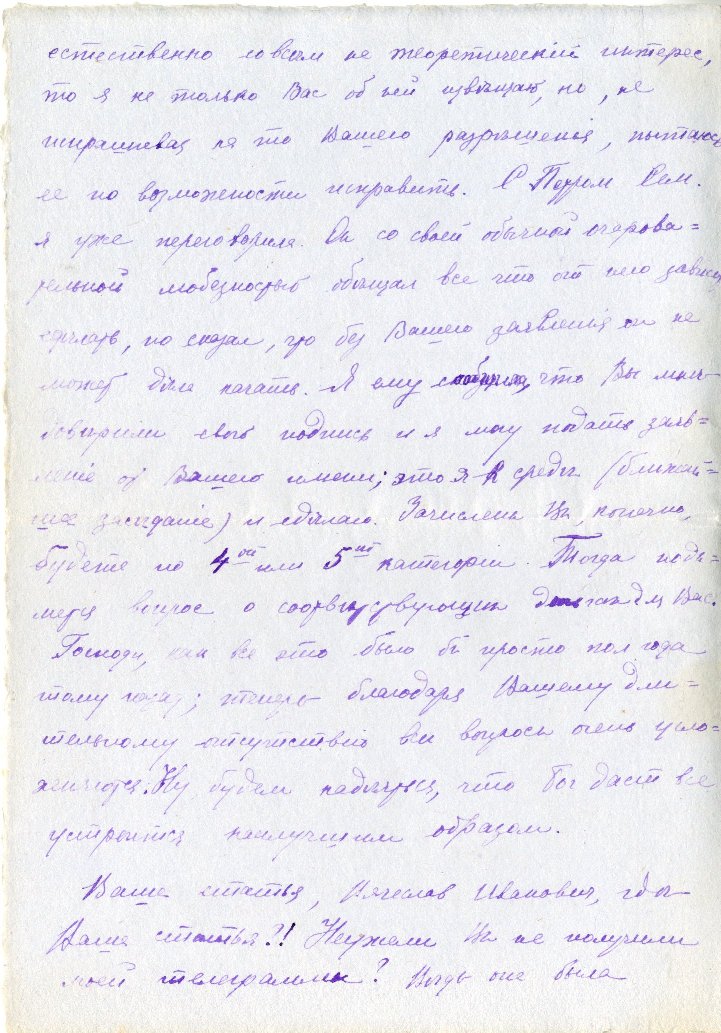 естественно совсем не теоретическій интерес,
то я не только Вас об ней извѣщаю, но, не
испрашивая на то Вашего разрѣшенія, пытаюсь
ее по возможности исправить. С Петром Сем.
я уже переговорила. Он со своей обычной очарова=
тельной любезностью обѣщал все что от него зависит
сдѣлать, но сказал, что без Вашего заявленія он не
может дѣла начать. Я ему сообщила, что Вы мнѣ
довѣрили свою подпись и я могу подать заяв=
леніе от Вашего имени; это я в среду (ближай=
шее засѣданіе) и сдѣлаю. Зачислены Вы, конечно,
будете по 4ой или 5ой категории. Тогда поды=
мется вопрос о соотвѣтствующих для Вас.
Господи, как все это было бы просто пол года
тому назад; теперь благодаря Вашему дли=
тельному отсутствію все вопросы очень усло=
жняются. Ну будем надѣяться, что Бог даст все
устроится наилучшим образом.
Ваша статья, Вячеслав Иванович, гдѣ
Ваша статья?! Неужели Вы не получили
моей телеграммы? Вѣдь она была